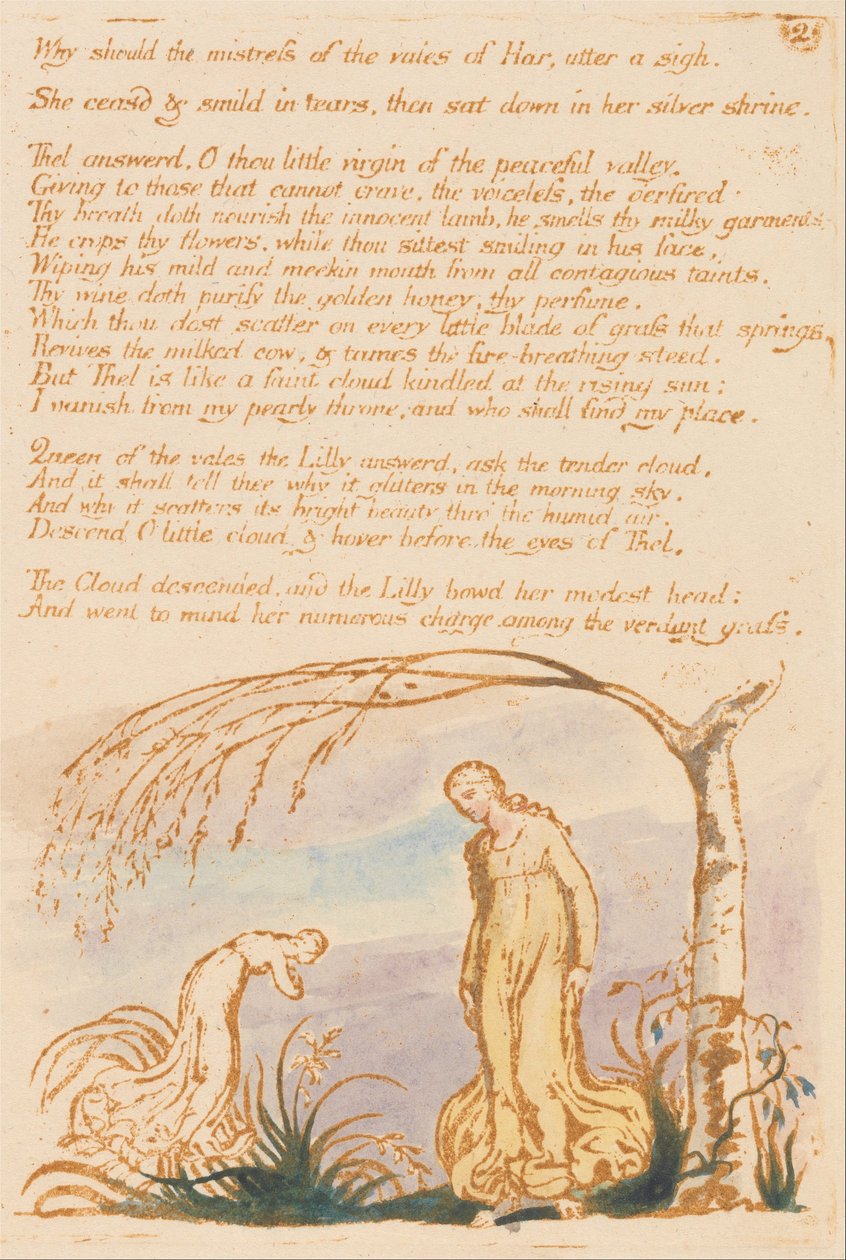 2
Why should the mistreſs of the vales of Har, utter a sigh.
She ceasd & smild in tears, then sat down in her silver shrine.
Thel answerd, O thou little virgin of the peaceful valley.
Giving to those that cannot crave, the voiceleſs, the o'erfired
Thy breath doth nourish the innocent lamb, he smells thy milky garments
He crops thy flowers, while thou sittest smiling in his face,
Wiping his mild and meekin mouth from all contagious taints.
Thy wine doth purify the golden honey, thy perfume.
Which thou dost scatter on every little blade of graſs that springs
Revives the milked cow, & tames the fire-breathing steed.
But Thel is like a faint cloud kindled at the rising sun:
I vanish from my pearly throne, and who shall find my place.
Queen of the vales the Lilly answerd, ask the tender cloud,
And it shall tell thee why it glitters in the morning sky,
And why it scatters its bright beauty thro' the humid air.
Descend O little cloud & hover before the eyes of Thel.
The Cloud descended, and the Lilly bowd her modest head:
And went to mind her numerous charge among the verdant graſs.